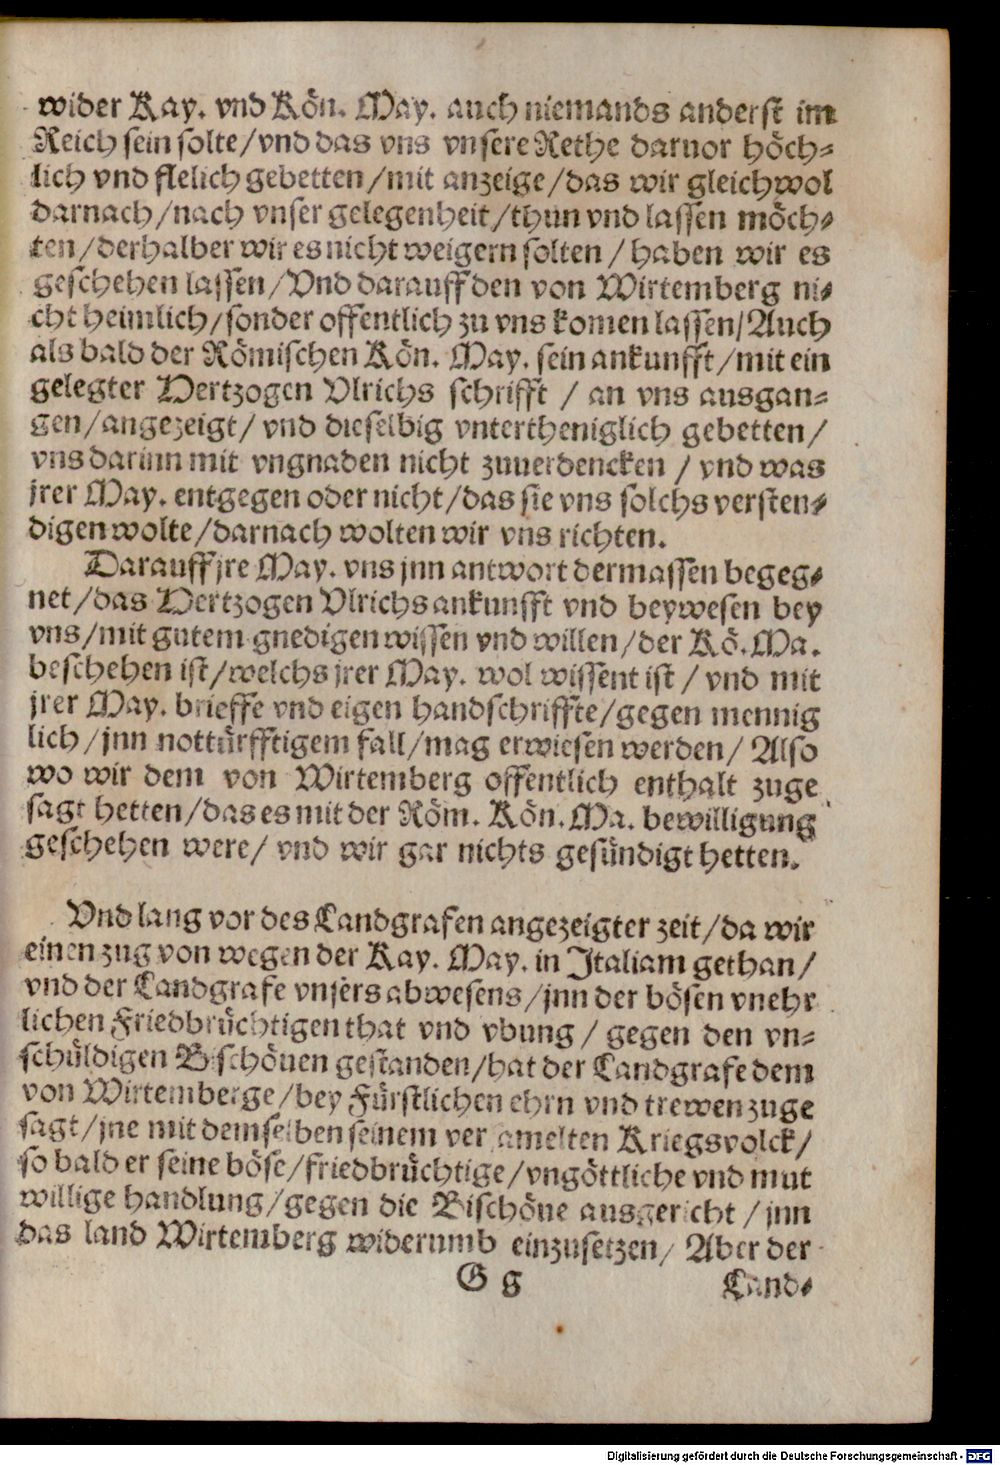 wider Kay. vnd Kön. May. auch niemands anderst im
Reich sein solte/vnd das vns vnsere Rethe daruor höch-
lich vnd flelich gebetten/mit anzeige/das wir gleichwol
darnach/nach vnser gelegenheit/thun vnd lassen möch-
ten/derhalber wir es nicht weigern solten/haben wir es
geschehen lassen/Vnd darauff den von Wirtemberg ni-
cht heimlich/sonder offentlich zu vns komen lassen/Auch
als bald der Römischen Kön. May. sein ankunfft/mit ein
gelegter Hertzogen Vlrichs schrifft / an vns ausgan-
gen/angezeigt/ vnd dieselbig vntertheniglich gebetten/
vns darinn mit vngnaden nicht zuuerdencken / vnd was
jrer May. entgegen oder nicht/das sie vns solchs versten-
digen wolte/darnach wolten wir vns richten.
Darauff jre May. vns jnn antwort dermassen begeg-
net/das Hertzogen Vlrichs ankunfft vnd beywesen bey
vns/mit gutem gnedigen wissen vnd willen/der Kö.Ma.
beschehen ist/welchs jrer May. wol wissent ist / vnd mit
jrer May. brieffe vnd eigen handschriffte/gegen mennig
lich/jnn nottürfftigem fall/mag erwiesen werden/ Also
wo wir dem von Wirtemberg offentlich enthalt zuge
sagt hetten/das es mit der Röm. Kön.Ma. bewilligung
geschehen were/ vnd wir gar nichts gesündigt hetten.
Vnd lang vor des Landgrafen angezeigter zeit/da wir
einen zug von wegen der Kay. May. in Italiam gethan/
vnd der Landgrafe vnsers abwesens/jnn der bösen vnehr
lichen Friedbrüchtigen that vnd vbung / gegen den vn-
schüldigen Bischöuen gestanden/hat der Landgrafe dem
von Wirtemberge/bey Fürstlichen ehrn vnd trewen zuge
sagt/jne mit demselben seinem versamelten Kriegsvolck/
so bald er seine böse/friedbrüchtige/vngöttliche vnd mut
willige handlung/gegen die Bischöue ausgericht / jnn
das land Wirtemberg widerumb einzusetzen/ Aber der
G g Land-
Digitalisierung gefördert durch die Deutsche Forschungsgemeinschaft - DFG